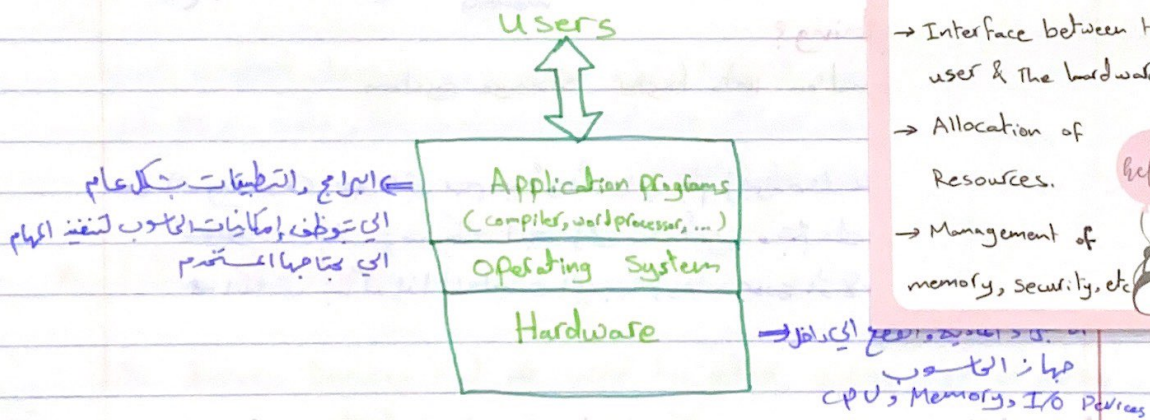 Users
Application programs
(compiler, word processor, ...)
Operating System
Hardware
البرامج والتطبيقات بشكل عام
الي توظف إمكانيات الحاسوب لتنفيذ المهام
الي يحتاجها المستخدم
والقطع الي داخل
جهاز الحاسوب
CPU, Memory, I/O Devices
→ Interface between
user & The hardwar
→ Allocation of
Resources.
→ Management of
memory, security, etc